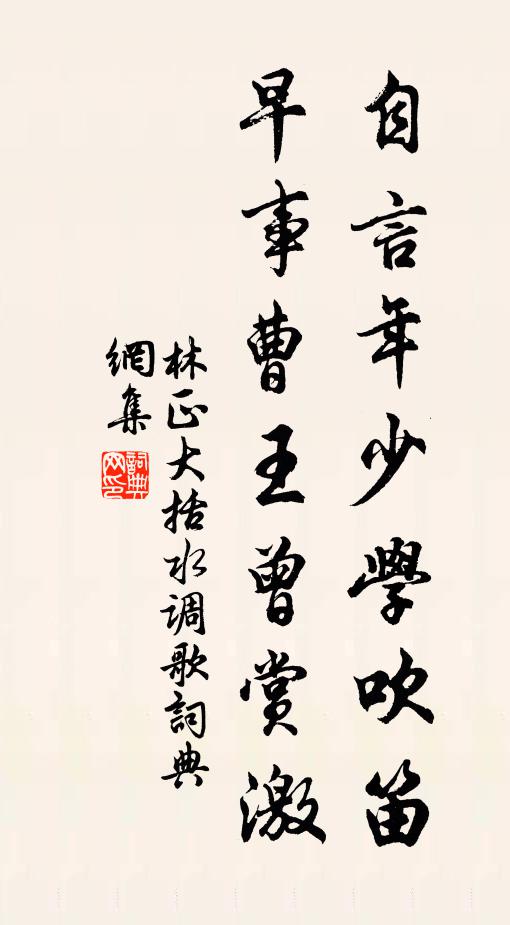 自言年少學吹笛
早事曹王曾賞激
林正大括水調歌詞典
網集
詞典網印